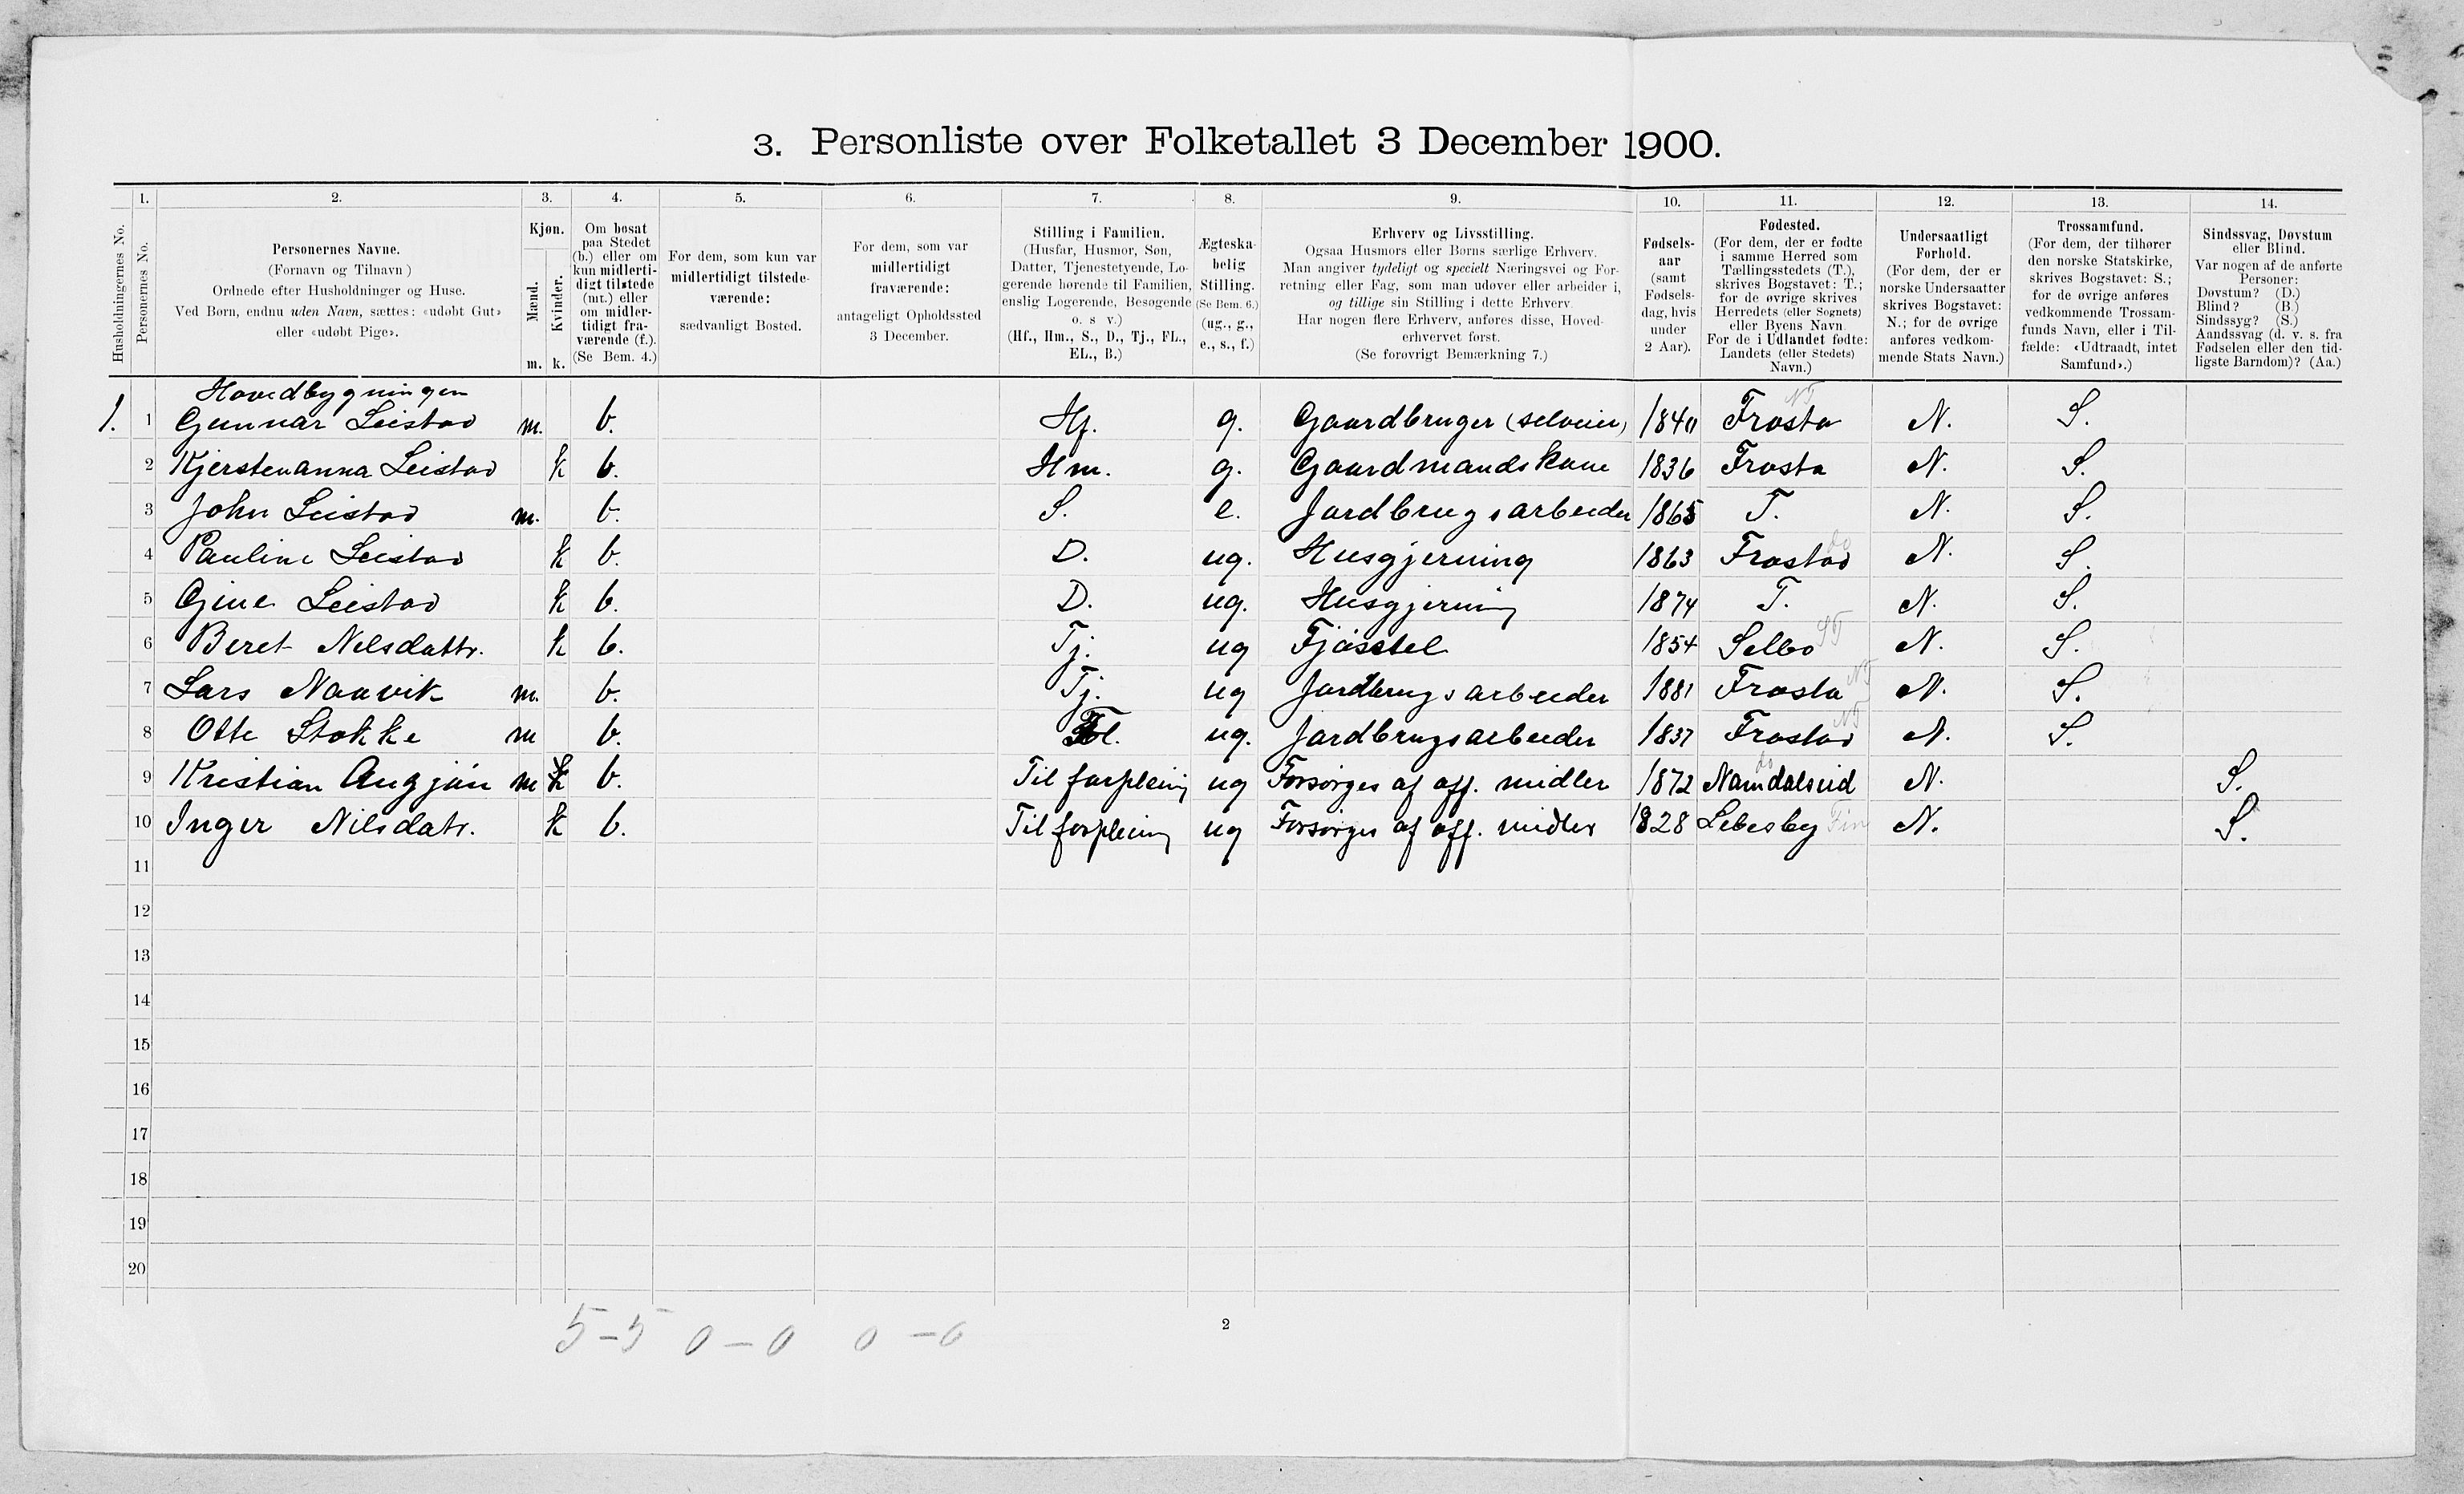 3. Personliste over Folketallet 3 December 1900.
1. 2. 3. 4. 5. 6. 7. 8. 9. 10. 11. 12. 13. 14.
Husholdningernes No.
Personernes No.
Personernes Navne.
(Fornavn og Tilnavn)
Ordnede efter Husholdninger og Huse.
Ved Børn, endnu uden Navn, sættes: «udøbt Gut»
eller «udøbt Pige».
Kjøn.
Mænd.
Kvinder.
m. k.
Om bosat
paa Stedet
(b.) eller om
kun midlerti-
digt tilstede
(mt.) eller
om midler-
tidigt fra-
værende (f.).
(Se Bem. 4.)
For dem, som kun var
midlertidigt tilstede-
værende:
sædvanligt Bosted.
For dem, som var
midlertidigt
fraværende:
antageligt Opholdssted
3 December.
Stilling i Familien.
(Husfar, Husmor, Søn,
Datter, Tjenestetyende, Lo-
gerende hørende til Familien,
enslig Logerende, Besøgende
o. s v.)
(Hf., Hm., S., D., Tj., FL.,
EL., B.)
Ægteska-
belig
Stilling.
(Se Bem. 6.)
(ug., g.,
e., s., f.)
Erhverv og Livsstilling.
Ogsaa Husmors eller Børns særlige Erhverv.
Man angiver tydeligt og specielt Næringsvei og For-
retning eller Fag, som man udøver eller arbeider i,
og tillige sin Stilling i dette Erhverv.
Har nogen flere Erhverv, anføres disse, Hoved-
erhvervet først.
(Se forøvrigt Bemærkning 7.)
Fødsels-
aar
(samt
Fødsels-
dag, hvis
under
2 Aar).
Fødested.
(For dem, der er fødte
i samme Herred som
Tællingsstedets (T.),
skrives Bogstavet: T.;
for de øvrige skrives
Herredets (eller Sognets)
eller Byens Navn.
For de i Udlandet fødte:
Landets (eller Stedets)
Navn.)
Undersaatligt
Forhold.
(For dem, der er
norske Undersaatter
skrives Bogstavet:
N.; for de øvrige
anføres vedkom-
mende Stats Navn.)
Trossamfund.
(For dem, der tilhører
den norske Statskirke,
skrives Bogstavet: S.;
for de øvrige anføres
vedkommende Trossam-
funds Navn, eller i Til-
fælde: «Udtraadt, intet
Samfund».)
Sindssvag, Døvstum
eller Blind.
Var nogen af de anførte
Personer:
Døvstum? (D.)
Blind? (B.)
Sindssyg? (S.)
Aandssvag (d. v. s. fra
Fødselen eller den tid-
ligste Barndom)? (Aa.)
Hovedbygningen
1. 1 Gunnar Leistad m. b. Hf. g. Gaardbruger (selveier) 1840 Frosta NT N. S.
2 Kjerstenanna Leistad k b. Hm. g. Gaardmandskone 1836 Frosta N. S.
3 John Leistad m. b. S. e. Jordbrugsarbeider 1865 T. N. S.
4 Pauline Leistad k b. D. ug. Husgjerning 1863 Frostad do N. S.
5 Gine Leistad k b. D. ug. Husgjerning 1874 T. N. S.
6 Beret Nilsdattr. k b. Tj. ug Fjøsstel 1854 Selbo ST N. S.
7 Lars Naavik m. b. Tj. ug Jordbrugsarbeider 1881 Frosta NT N. S.
8 Otte Stokke m b. Fl. ug. Jordbrugsarbeider 1837 Frostad NT N. S.
9 Kristian Augján m k b. Til forpleining ug Forsörges af off. midler 1872 Namdalseid do N. S.
10 Inger Nilsdatr. k b. Til forpleining ug Forsörges af off. midler 1828 Lebesby Fin N. S.
11
12
13
14
15
16
17
18
19
20
5 – 5 0 – 0 0 – 0
2